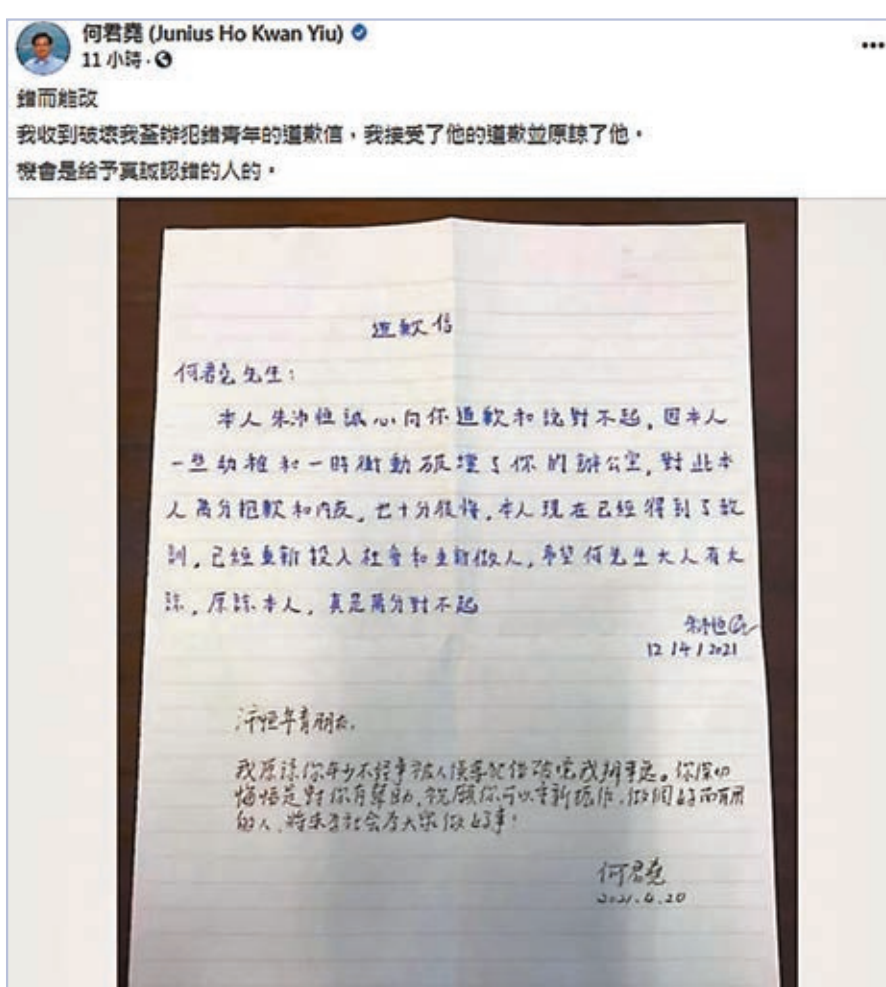 何君堯 (Junius Ho Kwan Yiu)
11 小時
錯而能改
我收到破壞我荃辦犯錯青年的道歉信，我接受了他的道歉並原諒了他。
機會是給予真誠認錯的人的。
道歉信
何君堯先生：
本人朱沛恒誠心向你道歉和說對不起，因本人
一些幼稚和一時衝動破壞了你的辦公室，對此本
人萬分抱歉和內疚，也十分後悔，本人現在已經得到了教
訓，已經重新投入社會和重新做人，希望何先生大人有大
諒，原諒本人，真是萬分對不起
12/4/2021
沛恒年青朋友，
我原諒你年少不經事被人誤導犯錯破壞我辦事處。你深切
悔悟是對你有幫助，祝願你可以重新振作，做個好而有用
的人，將來為社會為大眾做好事！
何君堯
2021.4.20